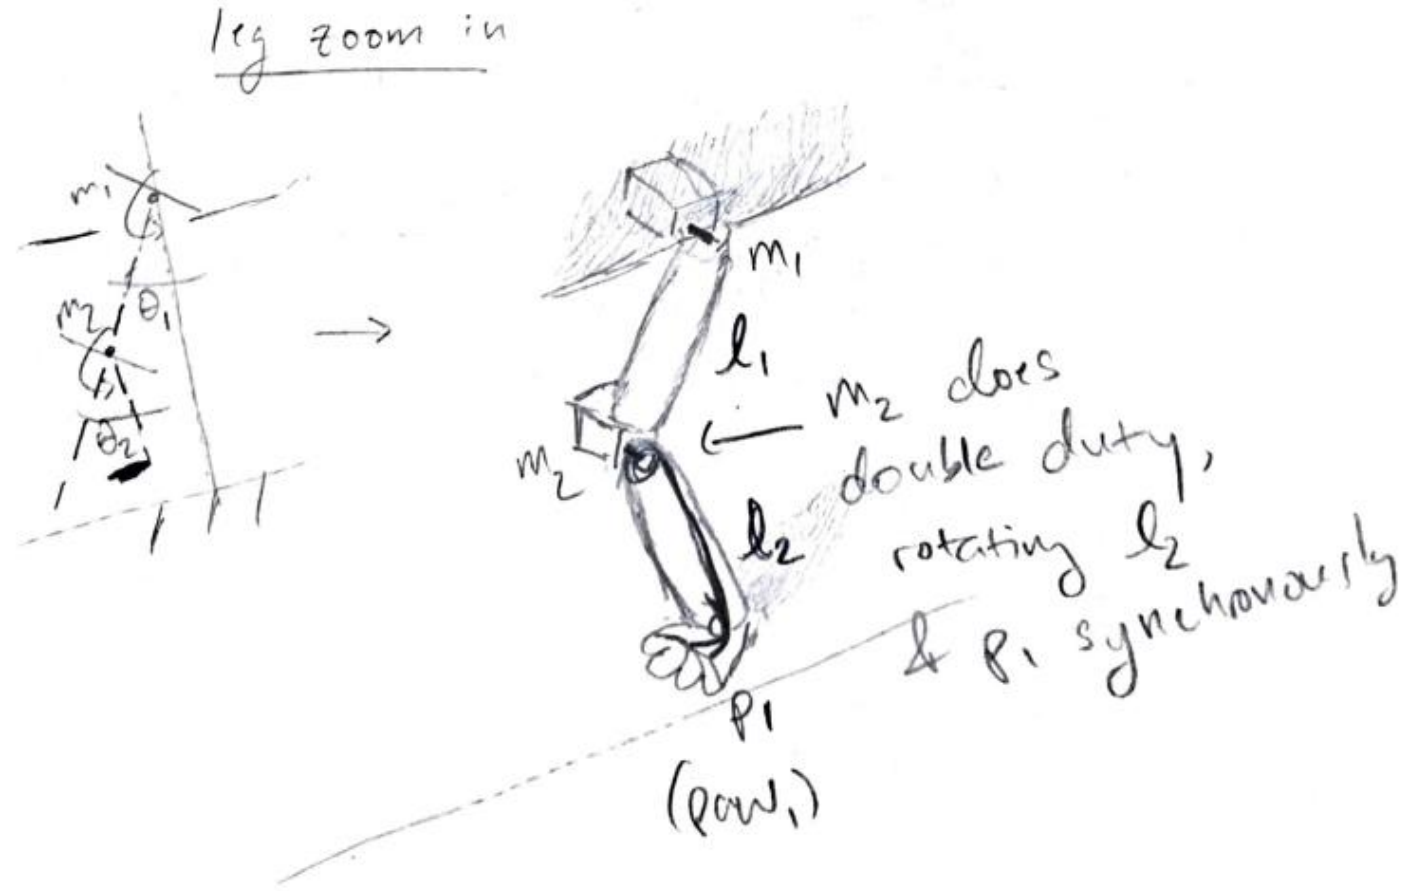 leg zoom in
m₁
θ₁
m₂
θ₂
m₁
l₁
m₂
l₂
← m₂ does
double duty,
rotating l₂
& p₁ synchronously
p₁
(paw₁)